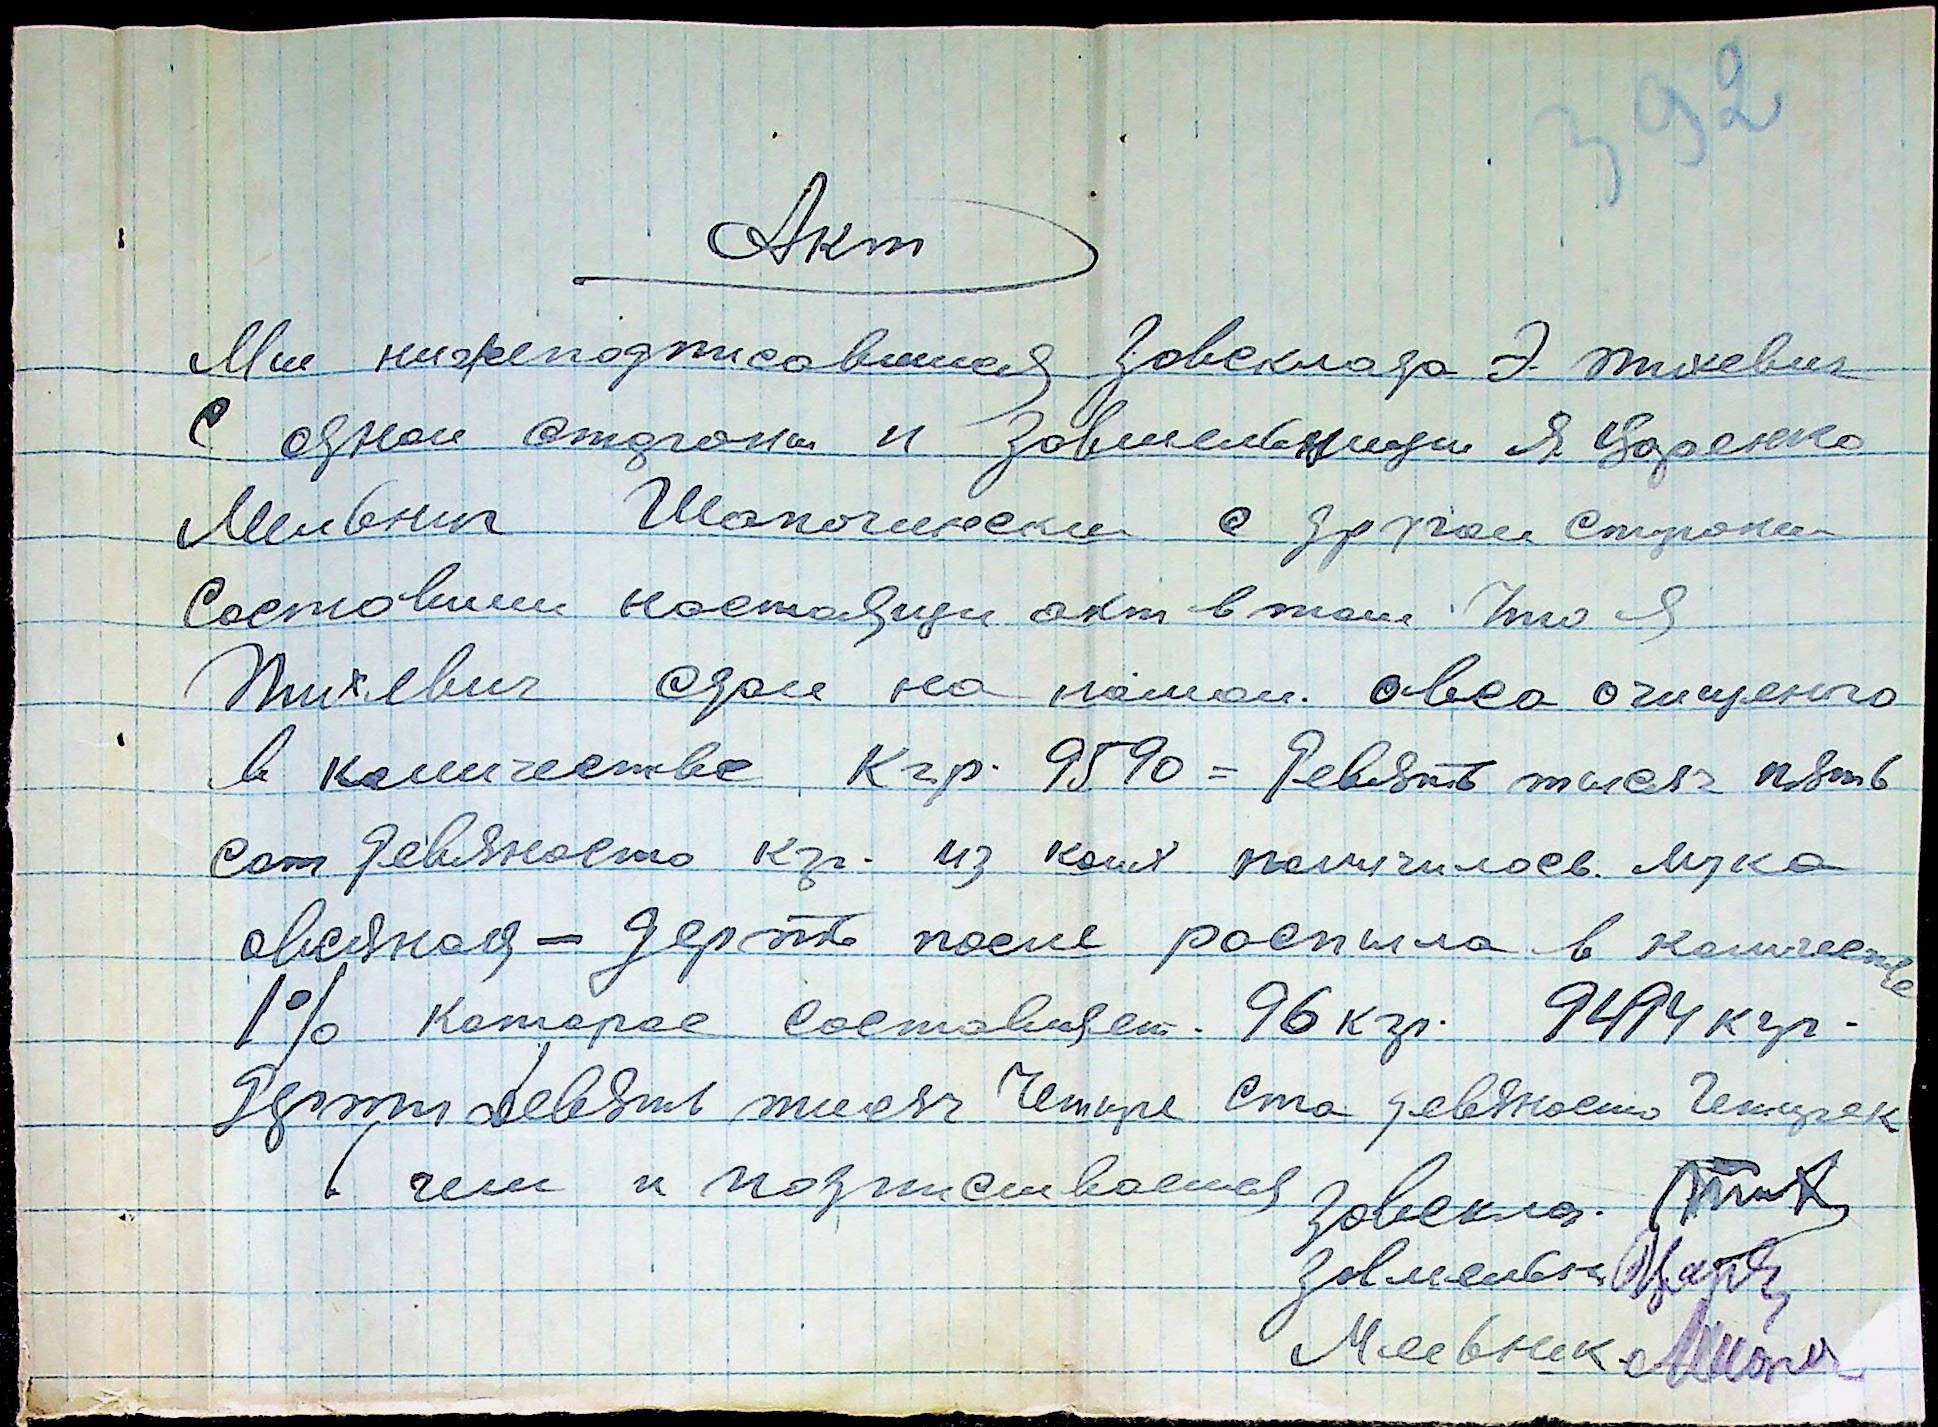 392
Акт
Мы нижеподписавшияся Завсклада Э. Тихевич
С одной стораны и Завмельницы Я Царенко
Мельник Шапочински с другой стороны
Составили настоящи акт в том что я
Тихевич сдал на помол. овса очищеного
в количестве Кгр. 9590 = Девять тысяч пять
сот девяносто кгр. из коих получилось. мука
овсяная – дерть после роспыла в количестве
1% которое составляет. 96 кгр. 9494 кгр.
Дерти девять тысяч Четыре ста девяносто Четыре к
чем и подписиваемся Завскла. Тих
Завмельн. Царе
Мельник Шап